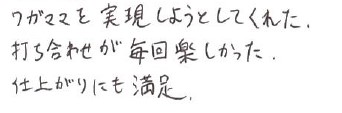 ワガママを実現しようとしてくれた.
打ち合わせが毎回楽しかった.
仕上がりにも満足.